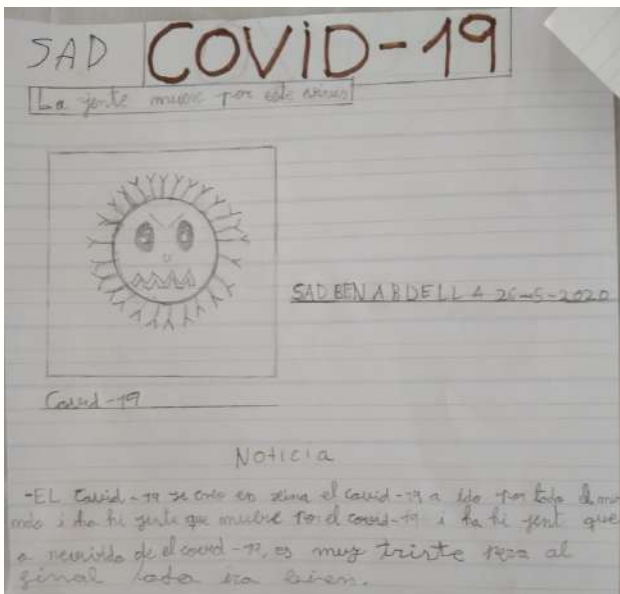 SAD COVID-19
La jente muere por este virus
SAD BEN ABDELL A 26-5-2020
Covid-19
Noticia
-EL Covid-19 se creo en xina el covid-19 a ido por todo el mu
ndo i ha hi jente que muere por el covid-19 i ha hi jent que
a de el covid-19, es muy triste pero al
final todo ira bien.